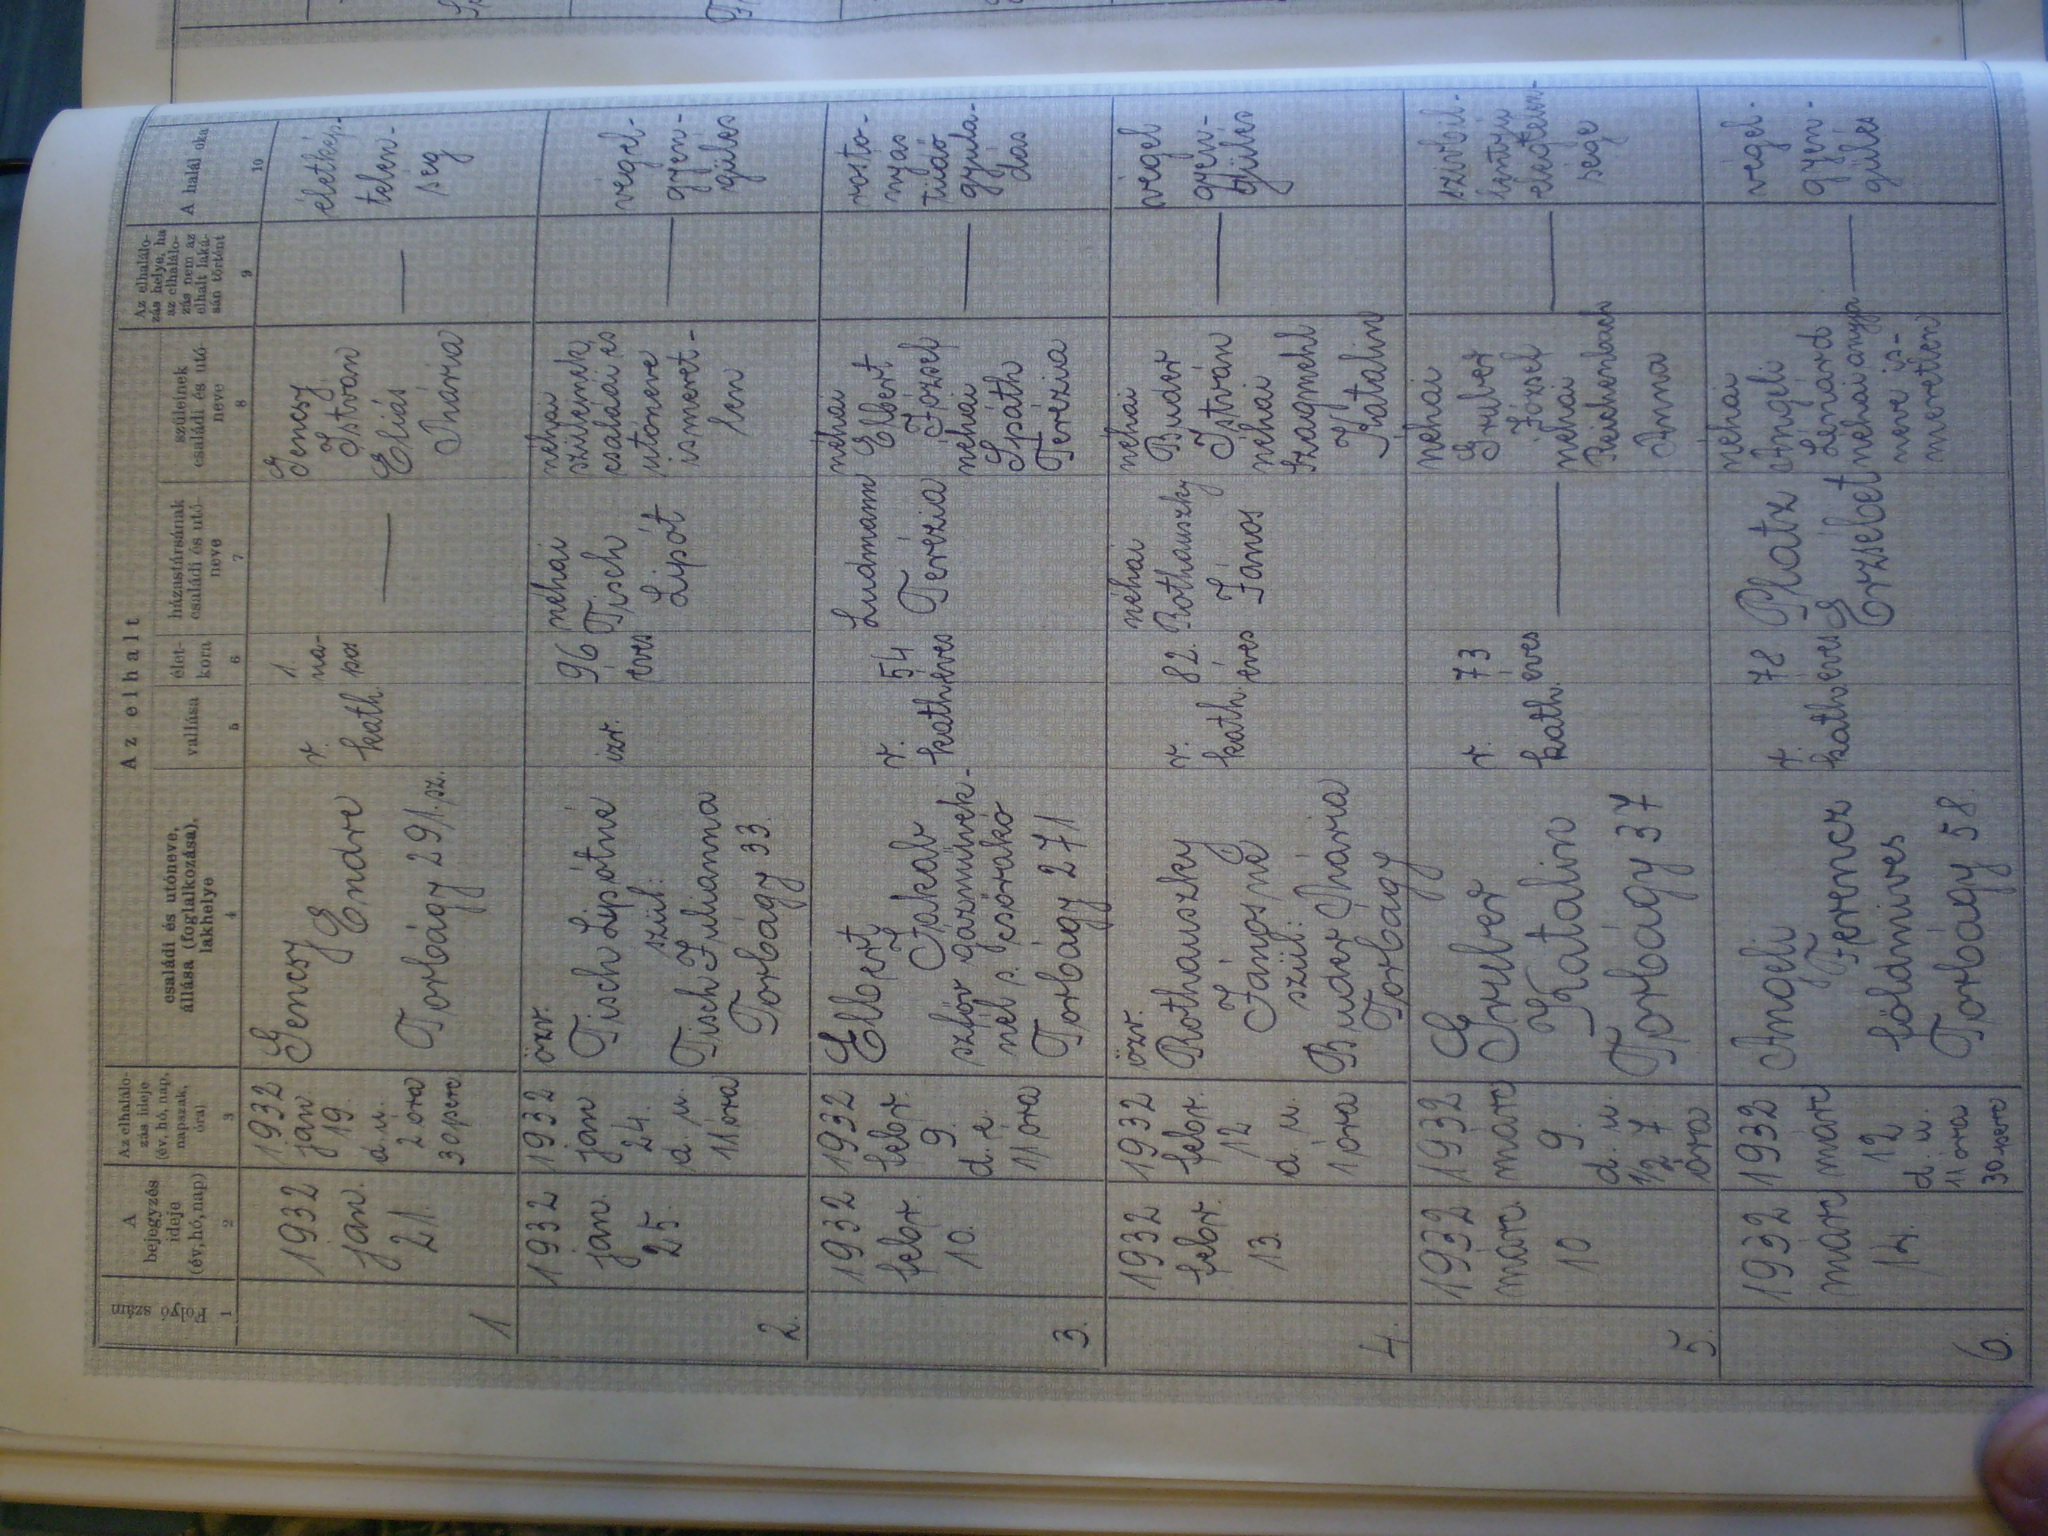 Az elhalt
Folyó szám
A bejegyzés ideje (év, hó, nap)
Az elhalálo-
zás ideje
(év, hó, nap,
napszak,
óra)
családi és utóneve,
állása (foglalkozása),
lakhelye
vallása
élet-
kora
házastársának
családi és utó-
neve
szüleinek
családi és utó-
neve
Az elhalálo-
zás helye, ha
az elhalálo-
zás nem az
elhalt laká-
sán történt
A halál oka
1 2 3 4 5 6 7 8 9 10
1
1932
jan.
21.
1932
jan.
19.
d. u.
2 óra
30 perc
Gencsy
Endre
Torbágy 291. sz.
r.
kath.
1
na-
pos
—
Gencsy
István
Éliás
Mária
—
életkép-
telen-
ség
2.
1932
jan.
25.
1932
jan
24.
d. u.
11 óra
özv.
Tisch Lipótné
szül:
Tisch Julianna
Torbágy 33.
izr.
96
éves
néhai
Tisch
Lipót
néhai
szüleinek
családi és
utóneve
ismeret-
len
—
végel-
gyen-
gülés
3.
1932
febr.
10.
1932
febr.
9.
d. e.
11 óra
Elbert
Jakab
szfőv gázművek-
nél s. csőrakó
Torbágy 271
r.
kath.
54
éves
Ludmann
Terézia
néhai
Elbert
József
néhai
Späth
Terézia
—
rosto-
nyás
tüdő
gyula-
dás
4.
1932
febr.
13.
1932
febr.
12
d. u.
1 óra
özv.
Rothauszky
Jánosné
szül:
Buder Mária
Torbágy
r.
kath.
82.
éves
néhai
Rothauszky
János
néhai
Buder
István
néhai
Szagmehl
Katalin
—
végel
gyen-
gülés
5.
1932
márc.
10
1932
márc
9.
d. u.
1/2 7
óra
Gruber
Katalin
Torbágy 37
r.
kath.
73
éves
—
néhai
Gruber
József
néhai
Reichenbach
Anna
—
szívbil-
lentyű
elégtelen-
sége
6.
1932
márc
14.
1932
márc
12
d. u.
11 óra
30 perc
Angeli
Ferencz
földmives
Torbágy 58.
r.
kath
78
éves
Platz
Erzsébet
néhai
Angeli
Lénárd
néhai anyja
neve is-
meretlen
—
végel-
gyen-
gülés